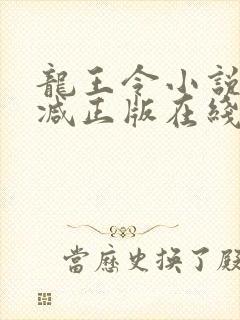 龍王令小說
減正版在綫
當歷史換了